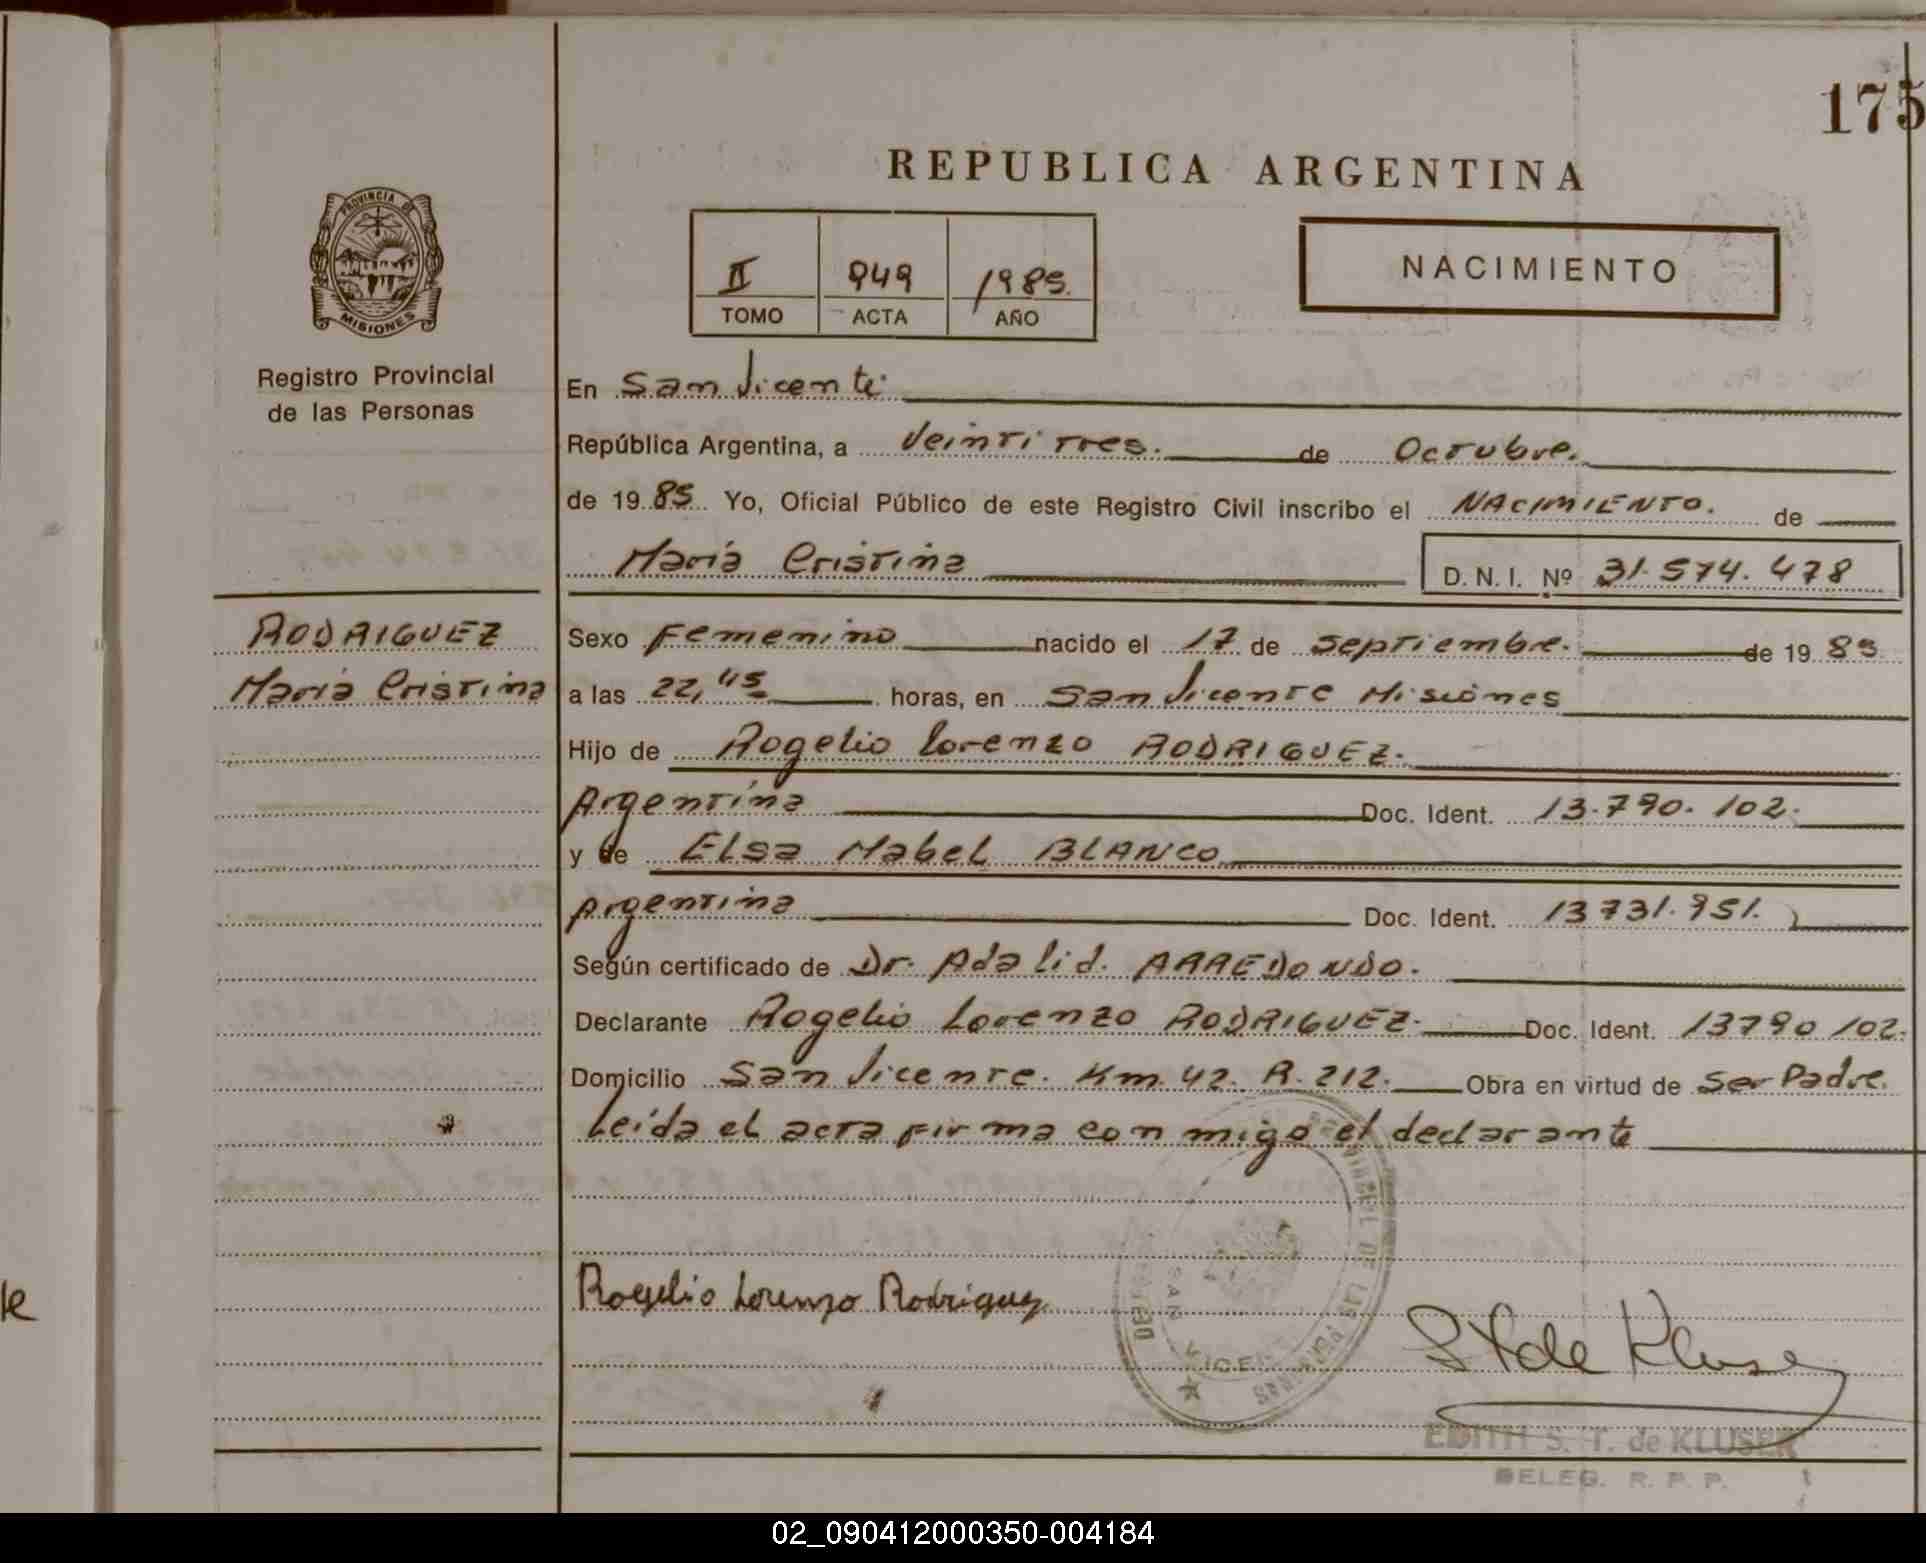 175
REPUBLICA ARGENTINA
PROVINCIA DE
MISIONES
Registro Provincial
de las Personas
II 949 1985.
TOMO ACTA AÑO
NACIMIENTO
En San Vicente
República Argentina, a Veintitres. de Octubre.
de 19 85 Yo, Oficial Público de este Registro Civil inscribo el NACIMIENTO. de
María Cristina D. N. I. Nº 31.574.478
RODRIGUEZ
María Cristina
Sexo Femenino nacido el 17 de Septiembre. de 19 85
a las 22,45 horas, en San Vicente Misiones
Hijo de Rogelio Lorenzo RODRIGUEZ.
Argentina Doc. Ident. 13.790.102.
y de Elsa Mabel BLANCO
Argentina Doc. Ident. 13731.951.
Según certificado de Dr. Adalid. ARREDONDO.
Declarante Rogelio Lorenzo RODRIGUEZ. Doc. Ident. 13790102.
Domicilio San Vicente. Km. 42. R. 212. Obra en virtud de Ser Padre.
Leída el acta firma conmigo el declarante
Rogelio Lorenzo Rodriguez
S T de Kluser
EDITH S. T. de KLUSER
DELEG. R. P. P.
02_090412000350-004184